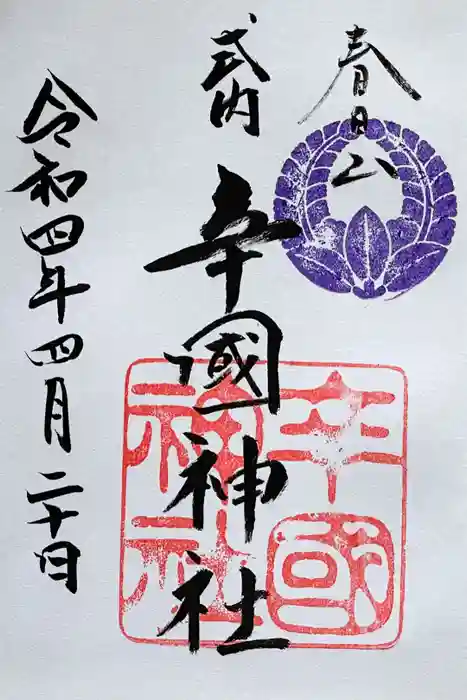 春日山
式内
辛國神社
令和四年四月二十日
辛國
神社